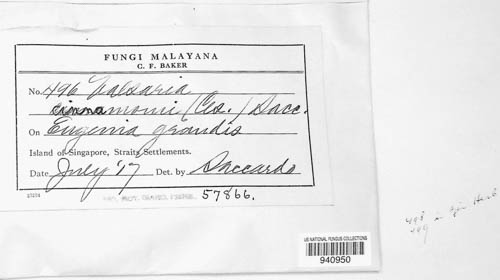 FUNGI MALAYANA
C. F. BAKER
No. 496 Valsaria
cinnamomi (Ces.) Sacc.
On Eugenia grandis
Island of Singapore, Straits Settlements.
Date July '17 Det. by Saccardo
57866.
US NATIONAL FUNGUS COLLECTIONS
940950